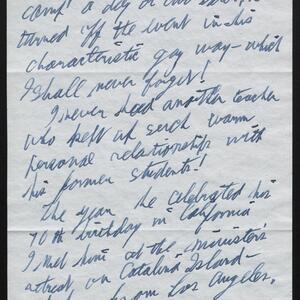 camp! a day or
turned off the event in his
characteristic gay way – which
I shall never forget!
I never had another teacher
who kept up such warm
personal relationship with
his former students!
The year he celebrated his
70th birthday in California
I met him at the minister's
retreat, on Catalina Island –
from Los Angeles,